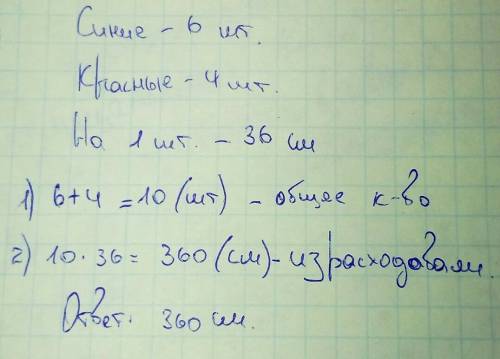 Синие - 6 шт.
Красные - 4 шт.
На 1 шт. - 36 см
1) 6+4 = 10 (шт) - общее к-во
2) 10 · 36 = 360 (см) - израсходавали.
Ответ. 360 см.